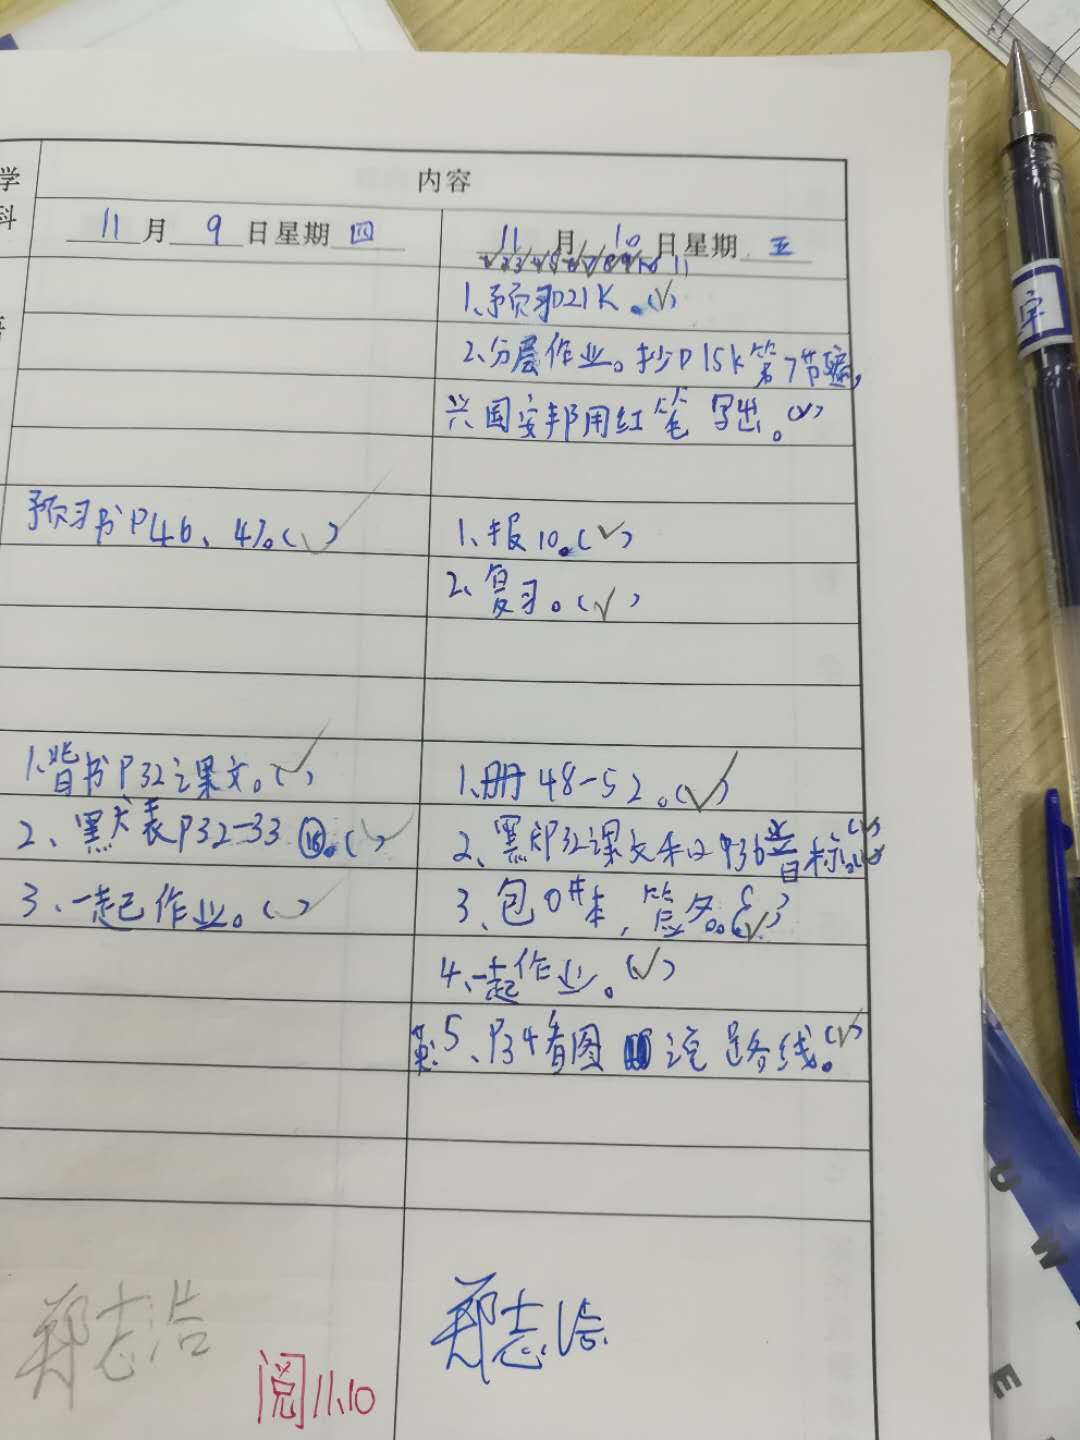 学
科
内容
11月9日星期四
11月10日星期五
1、预习D21K。(√)
2、分层作业。抄D15K第7节
兴国安邦用红笔写出。(√)
预习书P46、47。(√)
1、报10。(√)
2、复习。(√)
1、背书P32课文。(√)
2、黑大表P32-33⑮。(√)
3、一起作业。(√)
1、册48-52。(√)
2、黑P32课文和P36音标。(√)
3、包本,签名。(√)
4、一起作业。(√)
英:5、P34看图说路线。(√)
郑志浩
郑志浩
阅11.10
宇
U
W
E